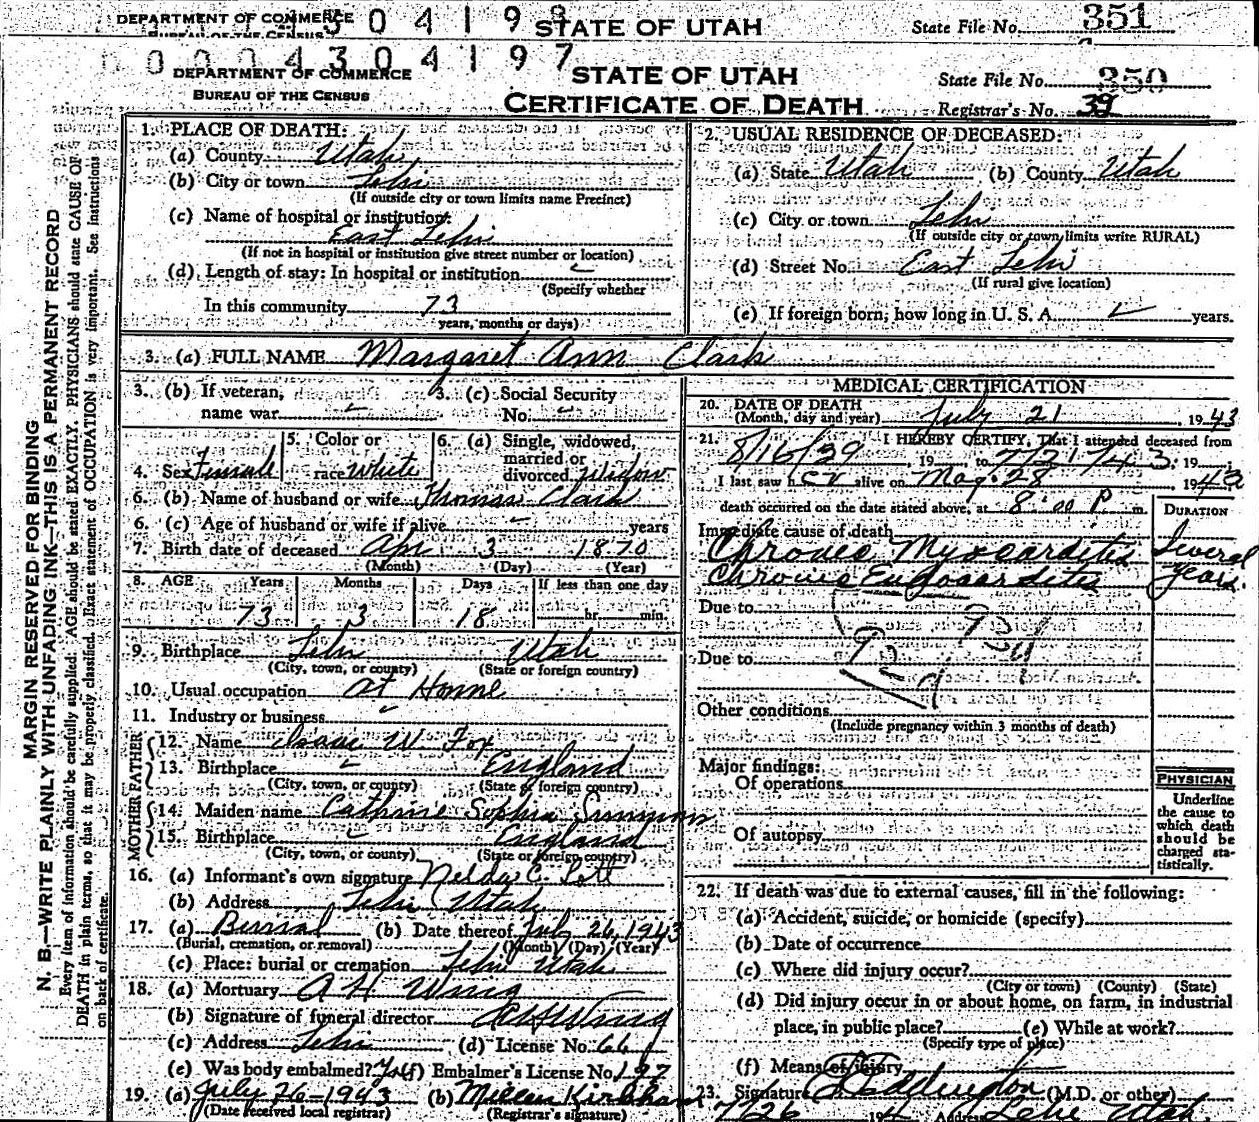 DEPARTMENT OF COMMERCE 304198 STATE OF UTAH State File No. 351
BUREAU OF THE CENSUS
0004304197
DEPARTMENT OF COMMERCE STATE OF UTAH State File No. 350
BUREAU OF THE CENSUS CERTIFICATE OF DEATH Registrar's No. 39
MARGIN RESERVED FOR BINDING
N. B.—WRITE PLAINLY WITH UNFADING INK—THIS IS A PERMANENT RECORD
Every item of information should be carefully supplied. AGE should be stated EXACTLY. PHYSICIANS should state CAUSE OF
DEATH in plain terms, so that it may be properly classified. Exact statement of OCCUPATION is very important. See Instructions
on back of certificate.
1. PLACE OF DEATH:
(a) County Utah
(b) City or town Lehi
(If outside city or town limits name Precinct)
(c) Name of hospital or institution:
East Lehi
(If not in hospital or institution give street number or location)
(d) Length of stay: In hospital or institution
(Specify whether
In this community 73
years, months or days)
2. USUAL RESIDENCE OF DECEASED:
(a) State Utah (b) County Utah
(c) City or town Lehi
(If outside city or town limits write RURAL)
(d) Street No. East Lehi
(If rural give location)
(e) If foreign born, how long in U. S. A. years.
3. (a) FULL NAME Margaret Ann Clark
3. (b) If veteran, name war
3. (c) Social Security No.
4. Sex Female
5. Color or race White
6. (a) Single, widowed, married or divorced Widow
6. (b) Name of husband or wife Thomas Clark
6. (c) Age of husband or wife if alive years
7. Birth date of deceased Apr 3 1870
(Month) (Day) (Year)
8. AGE Years Months Days If less than one day
73 3 18 hr. min.
9. Birthplace Lehi Utah
(City, town, or county) (State or foreign country)
10. Usual occupation at Home
11. Industry or business
FATHER
12. Name Isaac W. Fox
13. Birthplace England
(City, town, or county) (State or foreign country)
MOTHER
14. Maiden name Cathrine Sophia
15. Birthplace England
(City, town, or county) (State or foreign country)
16. (a) Informant's own signature Nelda C. Lott
(b) Address Lehi Utah
17. (a) Burial (b) Date thereof July 26, 1943
(Burial, cremation, or removal) (Month) (Day) (Year)
(c) Place: burial or cremation Lehi Utah
18. (a) Mortuary A H Wing
(b) Signature of funeral director A H Wing
(c) Address Lehi (d) License No. 66
(e) Was body embalmed? (f) Embalmer's License No. 197
19. (a) July 26-1943 (b) Kirkham
(Date received local registrar) (Registrar's signature)
MEDICAL CERTIFICATION
20. DATE OF DEATH
(Month, day and year) July 21 1943
21. I HEREBY CERTIFY, That I attended deceased from
8/16/39, 19 to 7/21/43. 19
I last saw her alive on May 28 194
death occurred on the date stated above, at 8:00 P m.
DURATION
Immediate cause of death
Chronic Myocarditis Several
Chronic Endocarditis years.
Due to
93d
Due to
92d
Other conditions
(Include pregnancy within 3 months of death)
Major findings:
Of operations
Of autopsy
PHYSICIAN
Underline
the cause to
which death
should be
charged sta-
tistically.
22. If death was due to external causes, fill in the following:
(a) Accident, suicide, or homicide (specify)
(b) Date of occurrence
(c) Where did injury occur?
(City or town) (County) (State)
(d) Did injury occur in or about home, on farm, in industrial
place, in public place? (e) While at work?
(Specify type of place)
(f) Means of injury
23. Signature Eddington (M.D. or other)
7/26 194 Address Lehi Utah.